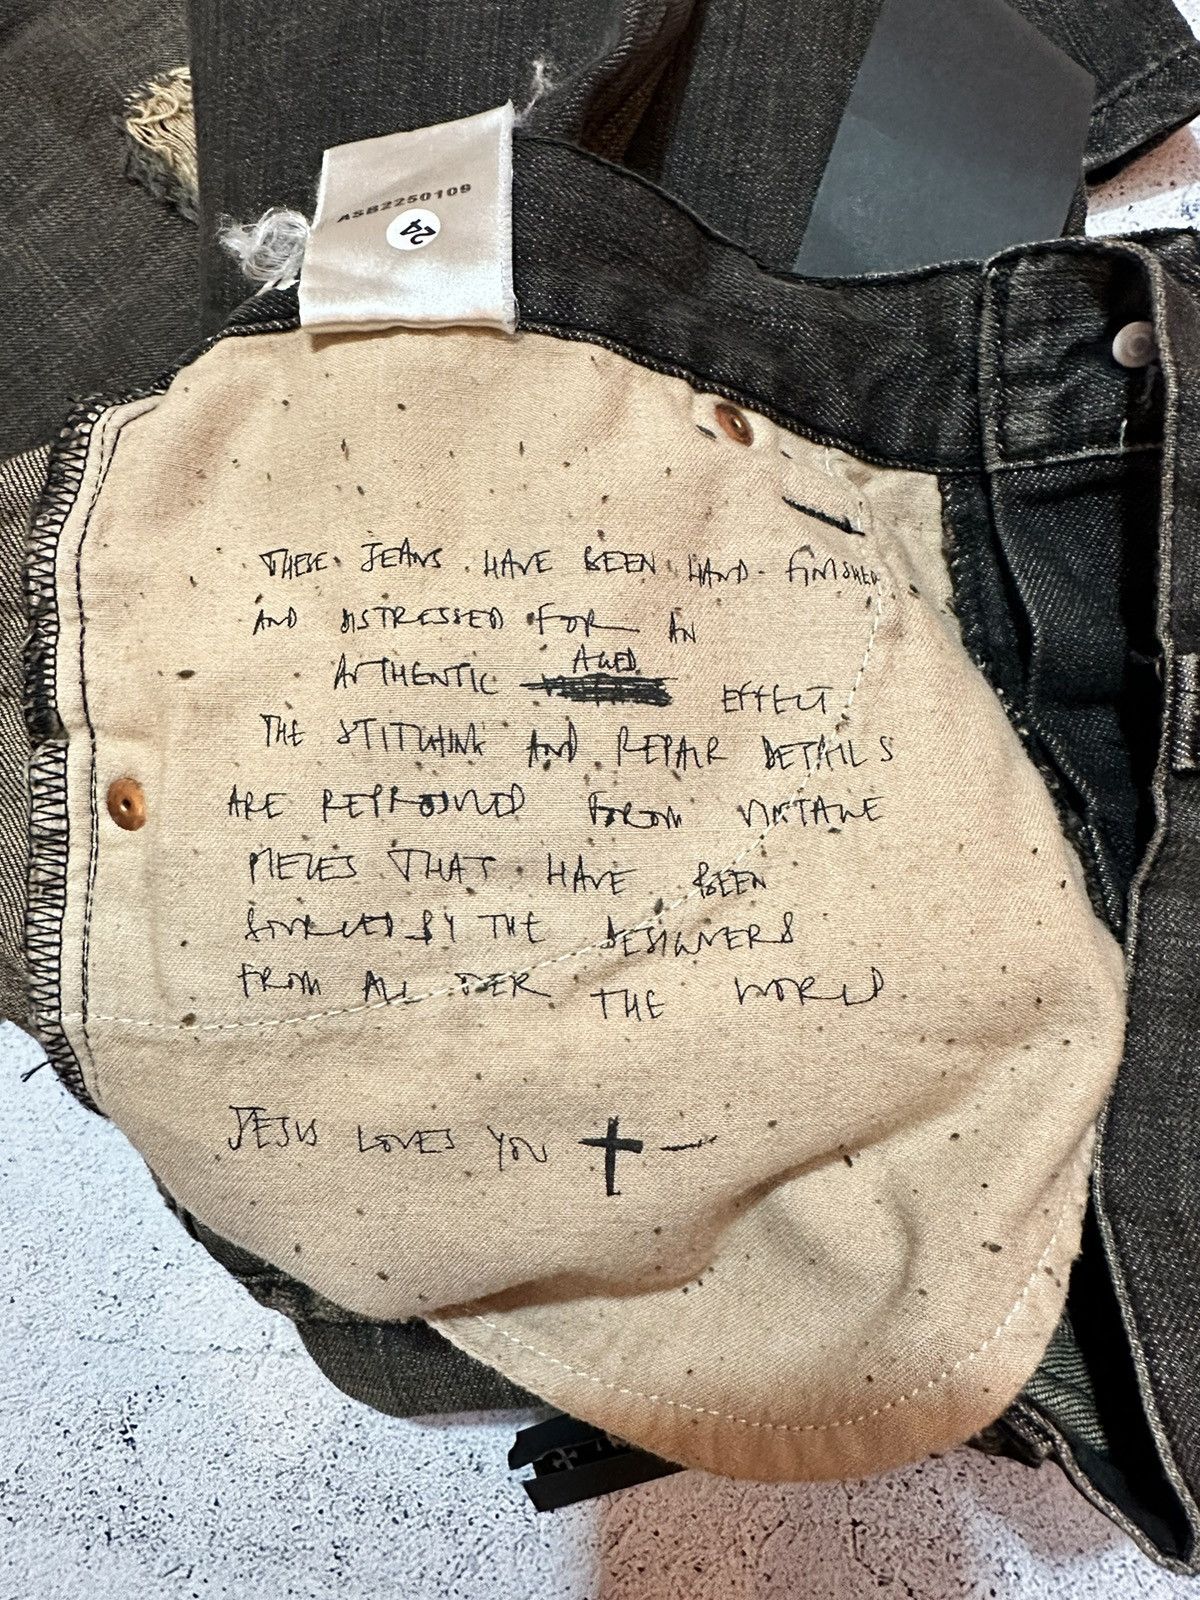 ASB2250109
24
THESE JEANS HAVE BEEN HAND-FINISHED
AND DISTRESSED FOR AN
AUTHENTIC AGED EFFECT.
THE STITCHING AND REPAIR DETAILS
ARE REPRODUCED FROM VINTAGE
PIECES THAT HAVE BEEN
SOURCED BY THE DESIGNERS
FROM ALL OVER THE WORLD
JESUS LOVES YOU